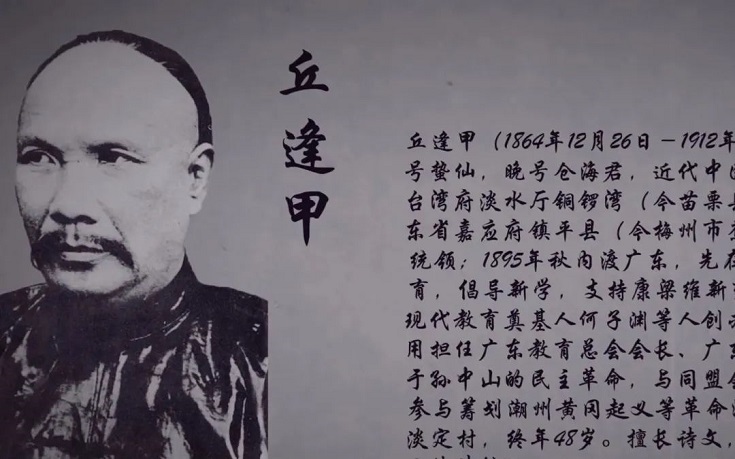 丘逢甲
丘逢甲（1864年12月26日－1912年
号蛰仙，晚号仓海君，近代中国
台湾府淡水厅铜锣湾（今苗栗县
东省嘉应府镇平县（今梅州市
统领；1895年秋内渡广东，先在
育，倡导新学，支持康梁维新
现代教育奠基人何子渊等人创
用担任广东教育总会会长、广
于孙中山的民主革命，与同盟会
参与筹划潮州黄冈起义等革命
淡定村，终年48岁。擅长诗文，